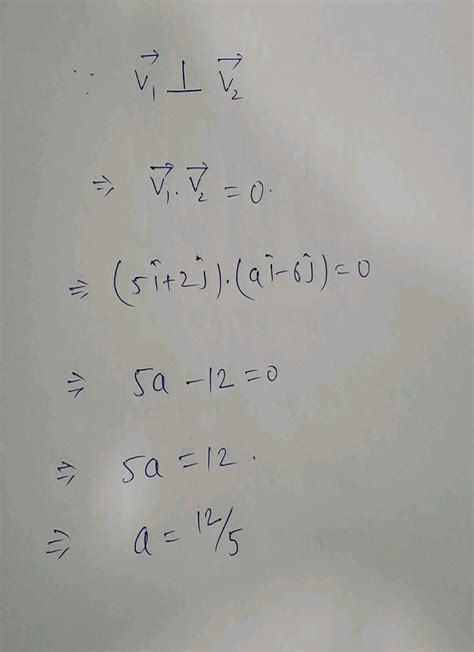 ∵ V₁⃗ ⊥ V₂⃗
⇒ V₁⃗ . V₂⃗ = 0.
⇒ (5î+2ĵ).(aî-6ĵ)=0
⇒ 5a -12=0
⇒ 5a =12.
⇒ a = 12/5